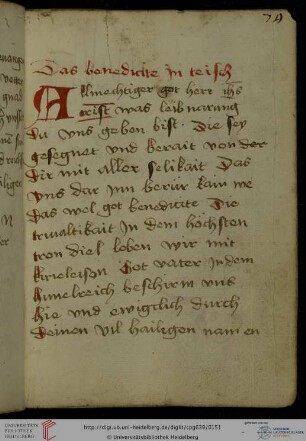 79
Das benedicite Jn teisch
Allmechtiger got herr ihs
crist was leib narung
Du vns geben bist Die sey
gesegnet vnd berait von der
Dir mit aller selikait Das
vns dar Jnn berür kain we
Das wol got benedicite Die
triualtikait Jn dem höchsten
tron diel loben wir mit
kirieleison Got vater Jndem
himelreich beschirm vns
hie vnd ewigclich durch
Deinen vil hailigen namen
UNIVERSITÄTS-
BIBLIOTHEK
HEIDELBERG
http://digi.ub.uni-heidelberg.de/diglit/cpg639/0151
© Universitätsbibliothek Heidelberg